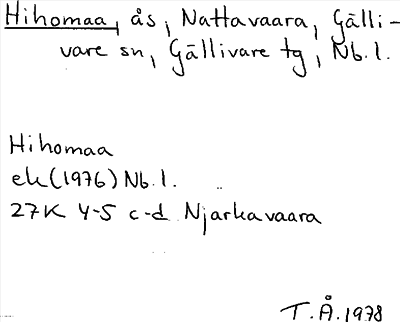 Hihomaa, ås, Nattavaara, Gälli-
vare sn, Gällivare tg, Nb.l.
Hihomaa
ek(1976) Nb.l.
27K 4-5 c-d Njarkavaara
T.Å.1978